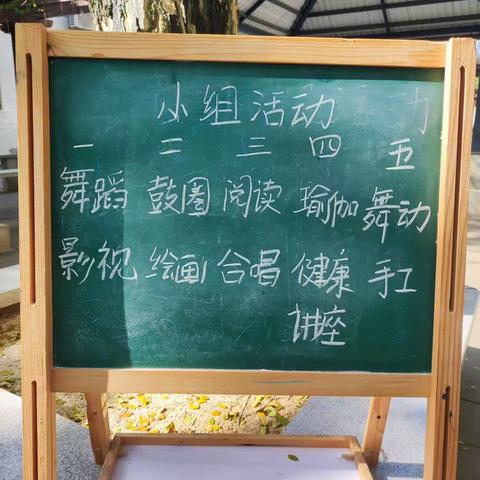 小组活动
一 二 三 四 五
舞蹈 鼓圈 阅读 瑜伽 舞动
影视 绘画 合唱 健康 手工
讲座